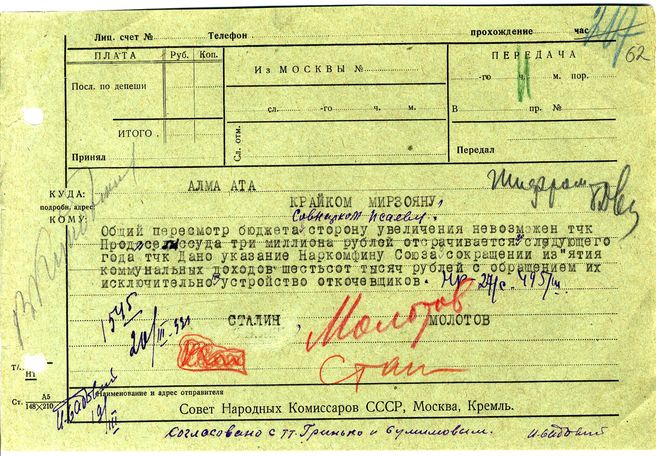 Лиц. счет № Телефон прохождение час.
62
ПЛАТА Руб. Коп.
Посл. по депеши
ИТОГО.
Принял
Из МОСКВЫ №
сл. -го ч. м.
Сл. отм.
ПЕРЕДАЧА
-го ч. м. пор.
В пр. №
Передал
КУДА:
подробн. адрес
КОМУ:
АЛМА АТА
Шифром
КРАЙКОМ МИРЗОЯНУ,
Совнарком Исаеву.
Общий пересмотр бюджета сторону увеличения невозможен тчк
три миллиона рублей отсрачивается следующего
года тчк Дано указание Наркомфину Союза сокращении из"ятия
коммунальных доходов шестьсот тысяч рублей с обращением их
исключительно устройство откочевщиков.
1545
20/III
СТАЛИН, МОЛОТОВ
Молотов
Стал
Т/
НТ
Ст. А5 148×210
Наименование и адрес отправителя
Совет Народных Комиссаров СССР, Москва, Кремль.
19/III
Согласовано с тт. Гринько и Сулимовым.